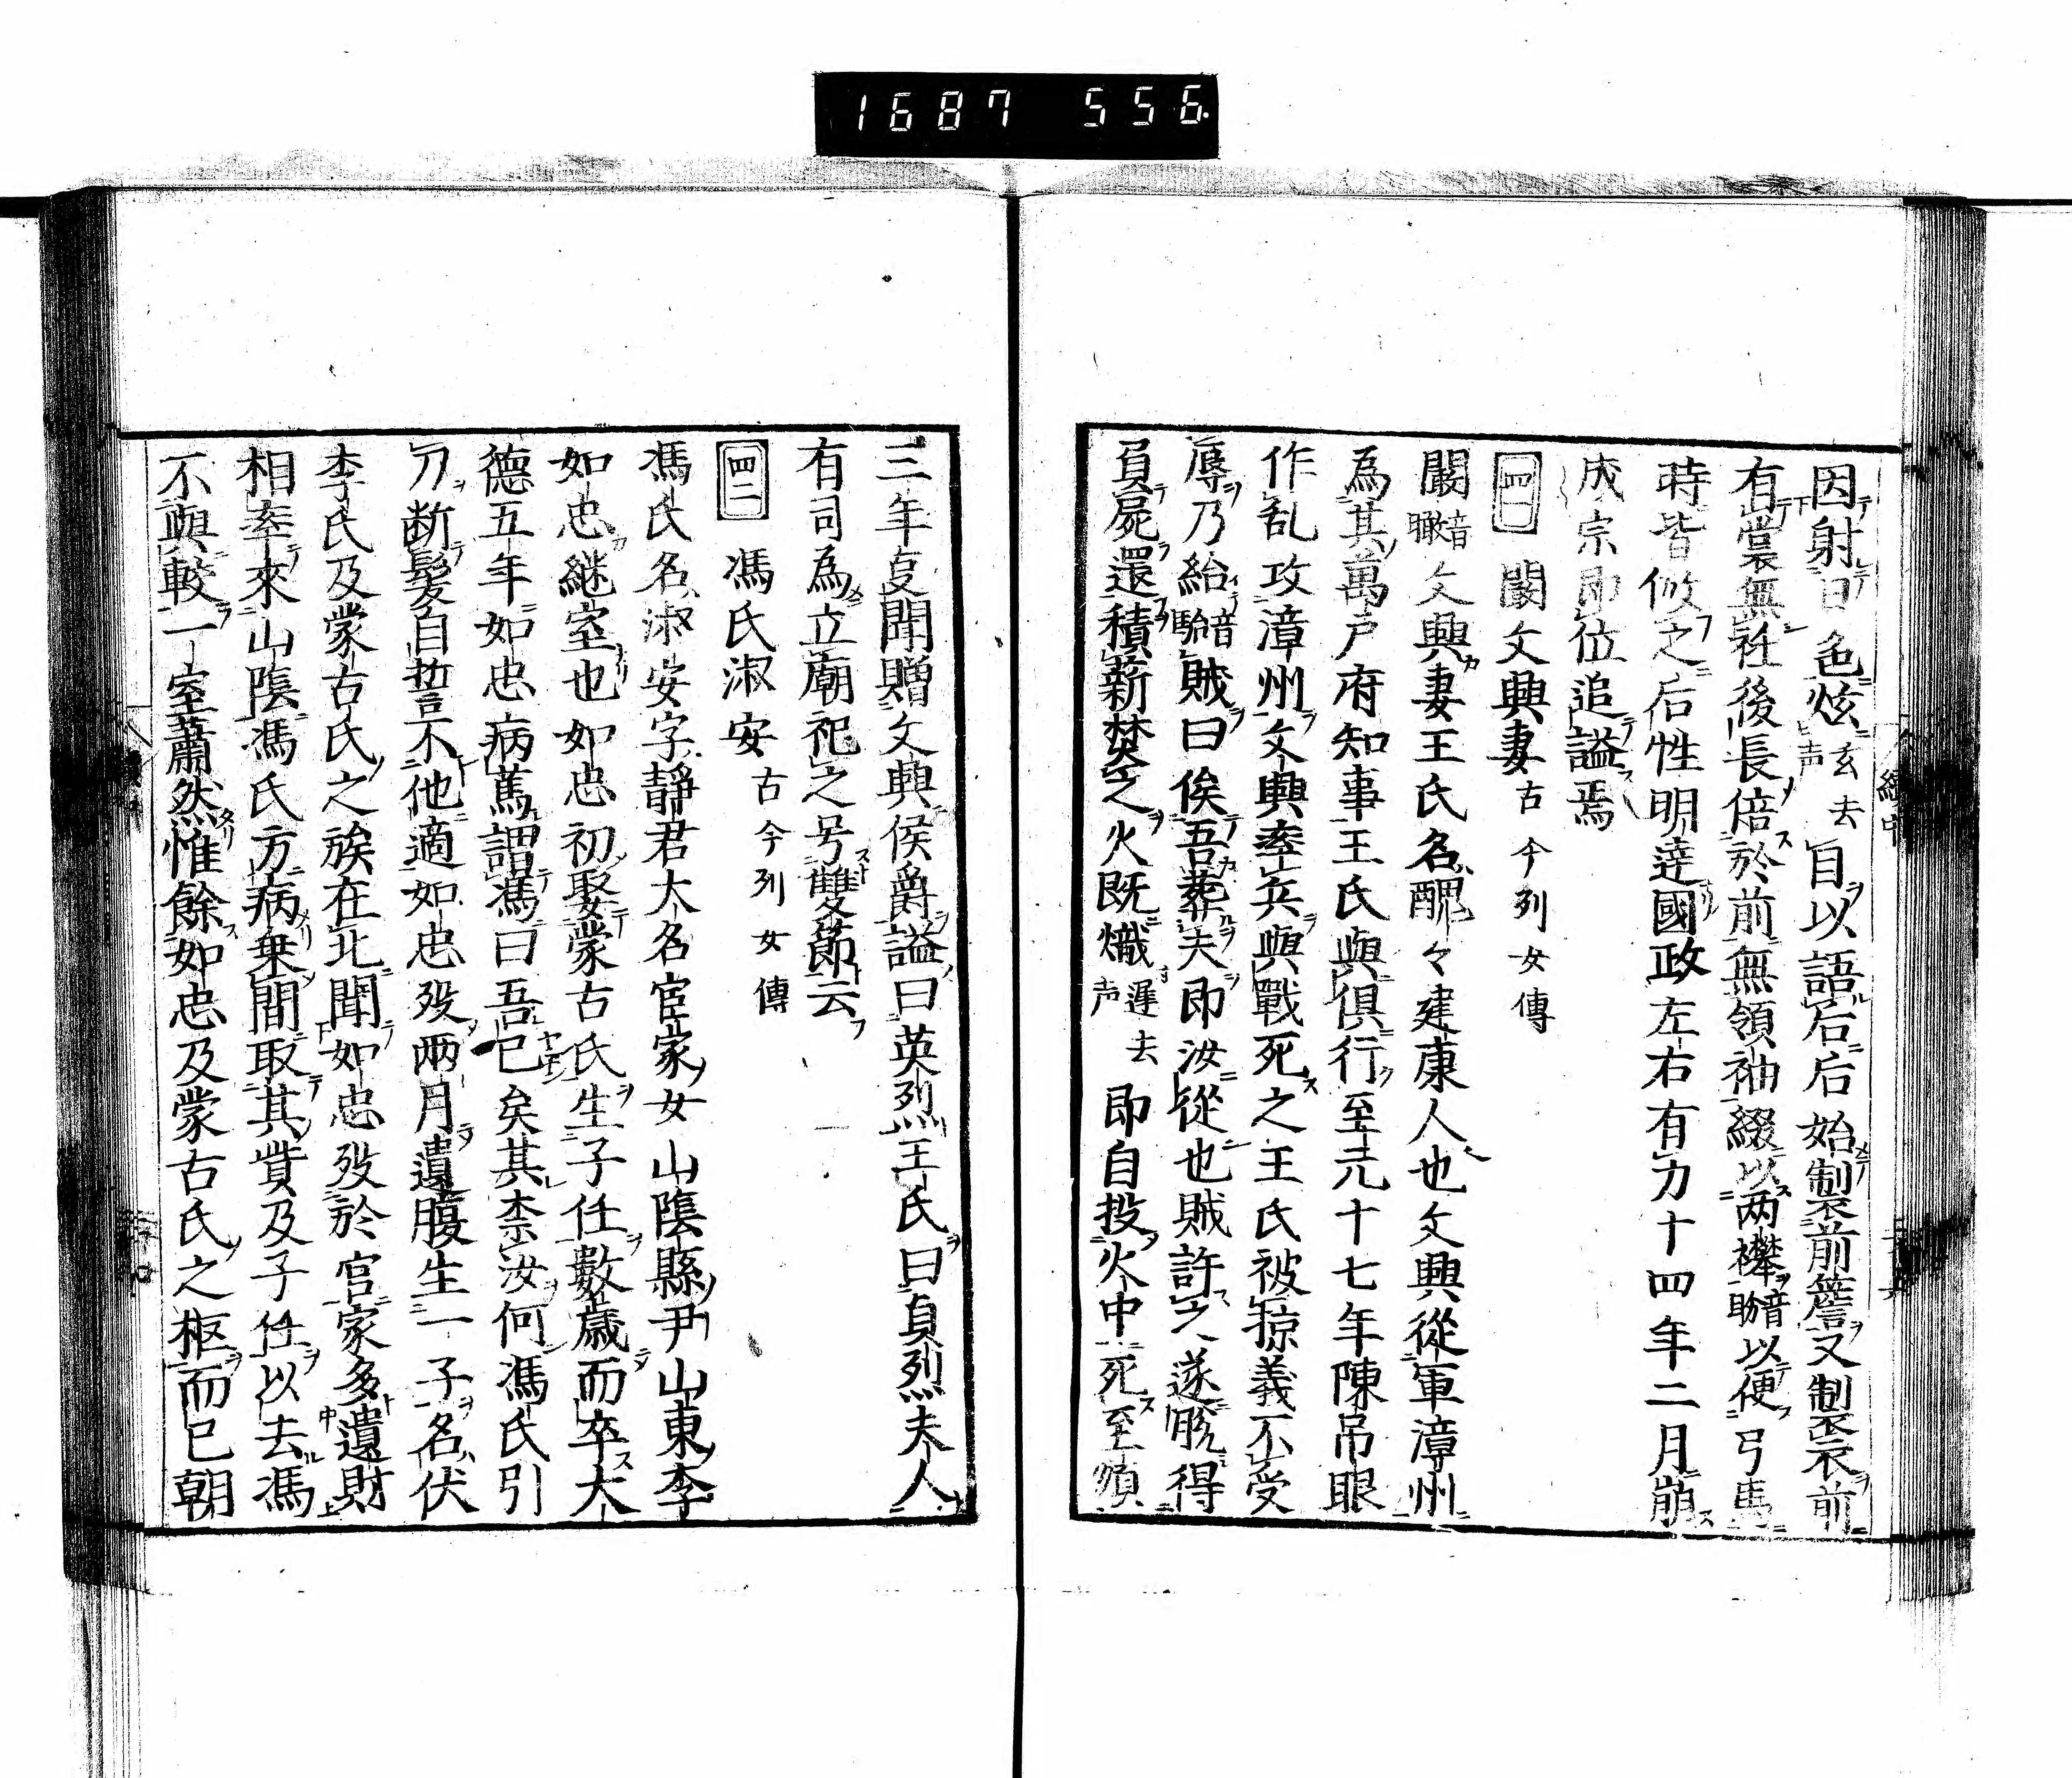 1687 556
因射日色炫玄去声自以語后后始製前簷又製裘前
有裳無衽後長倍於前無領袖綴以両襻音盼以便弓馬
時皆倣之后性明達國政左右有力十四年二月崩
成宗即位追謚焉
四一 闞文興妻古今列女傳
闞音瞰文興妻王氏名醜々建康人也文興從軍漳州
為其萬戸府知事王氏與倶行至元十七年陳吊眼
作乱攻漳州文興率兵與戰死之王氏被掠義不受
辱乃紿音駘賊曰俟吾葬夫即汝從也賊許之遂脱得
負屍還積薪焚之火既熾遲去声即自投火中死至順
三年事聞贈文興侯爵謚曰英烈王氏曰貞烈夫人
有司為立廟祀之号雙節云
四二 馮氏淑安古今列女傳
馮氏名淑安字靜君大名宦家女山陰縣尹山東李
如忠継室也如忠初娶蒙古氏生子任數歳而卒大
德五年如忠病篤謂馮曰吾已矣其柰汝何馮氏引
刀断髮自誓不他適如忠歿両月遺腹生一子名伏
李氏及蒙古氏之族在北聞如忠歿於官家多遺財
相率來山陰馮氏方病乗間取其貲及子任以去馮
不與較一室蕭然惟餘如忠及蒙古氏之柩而已朝